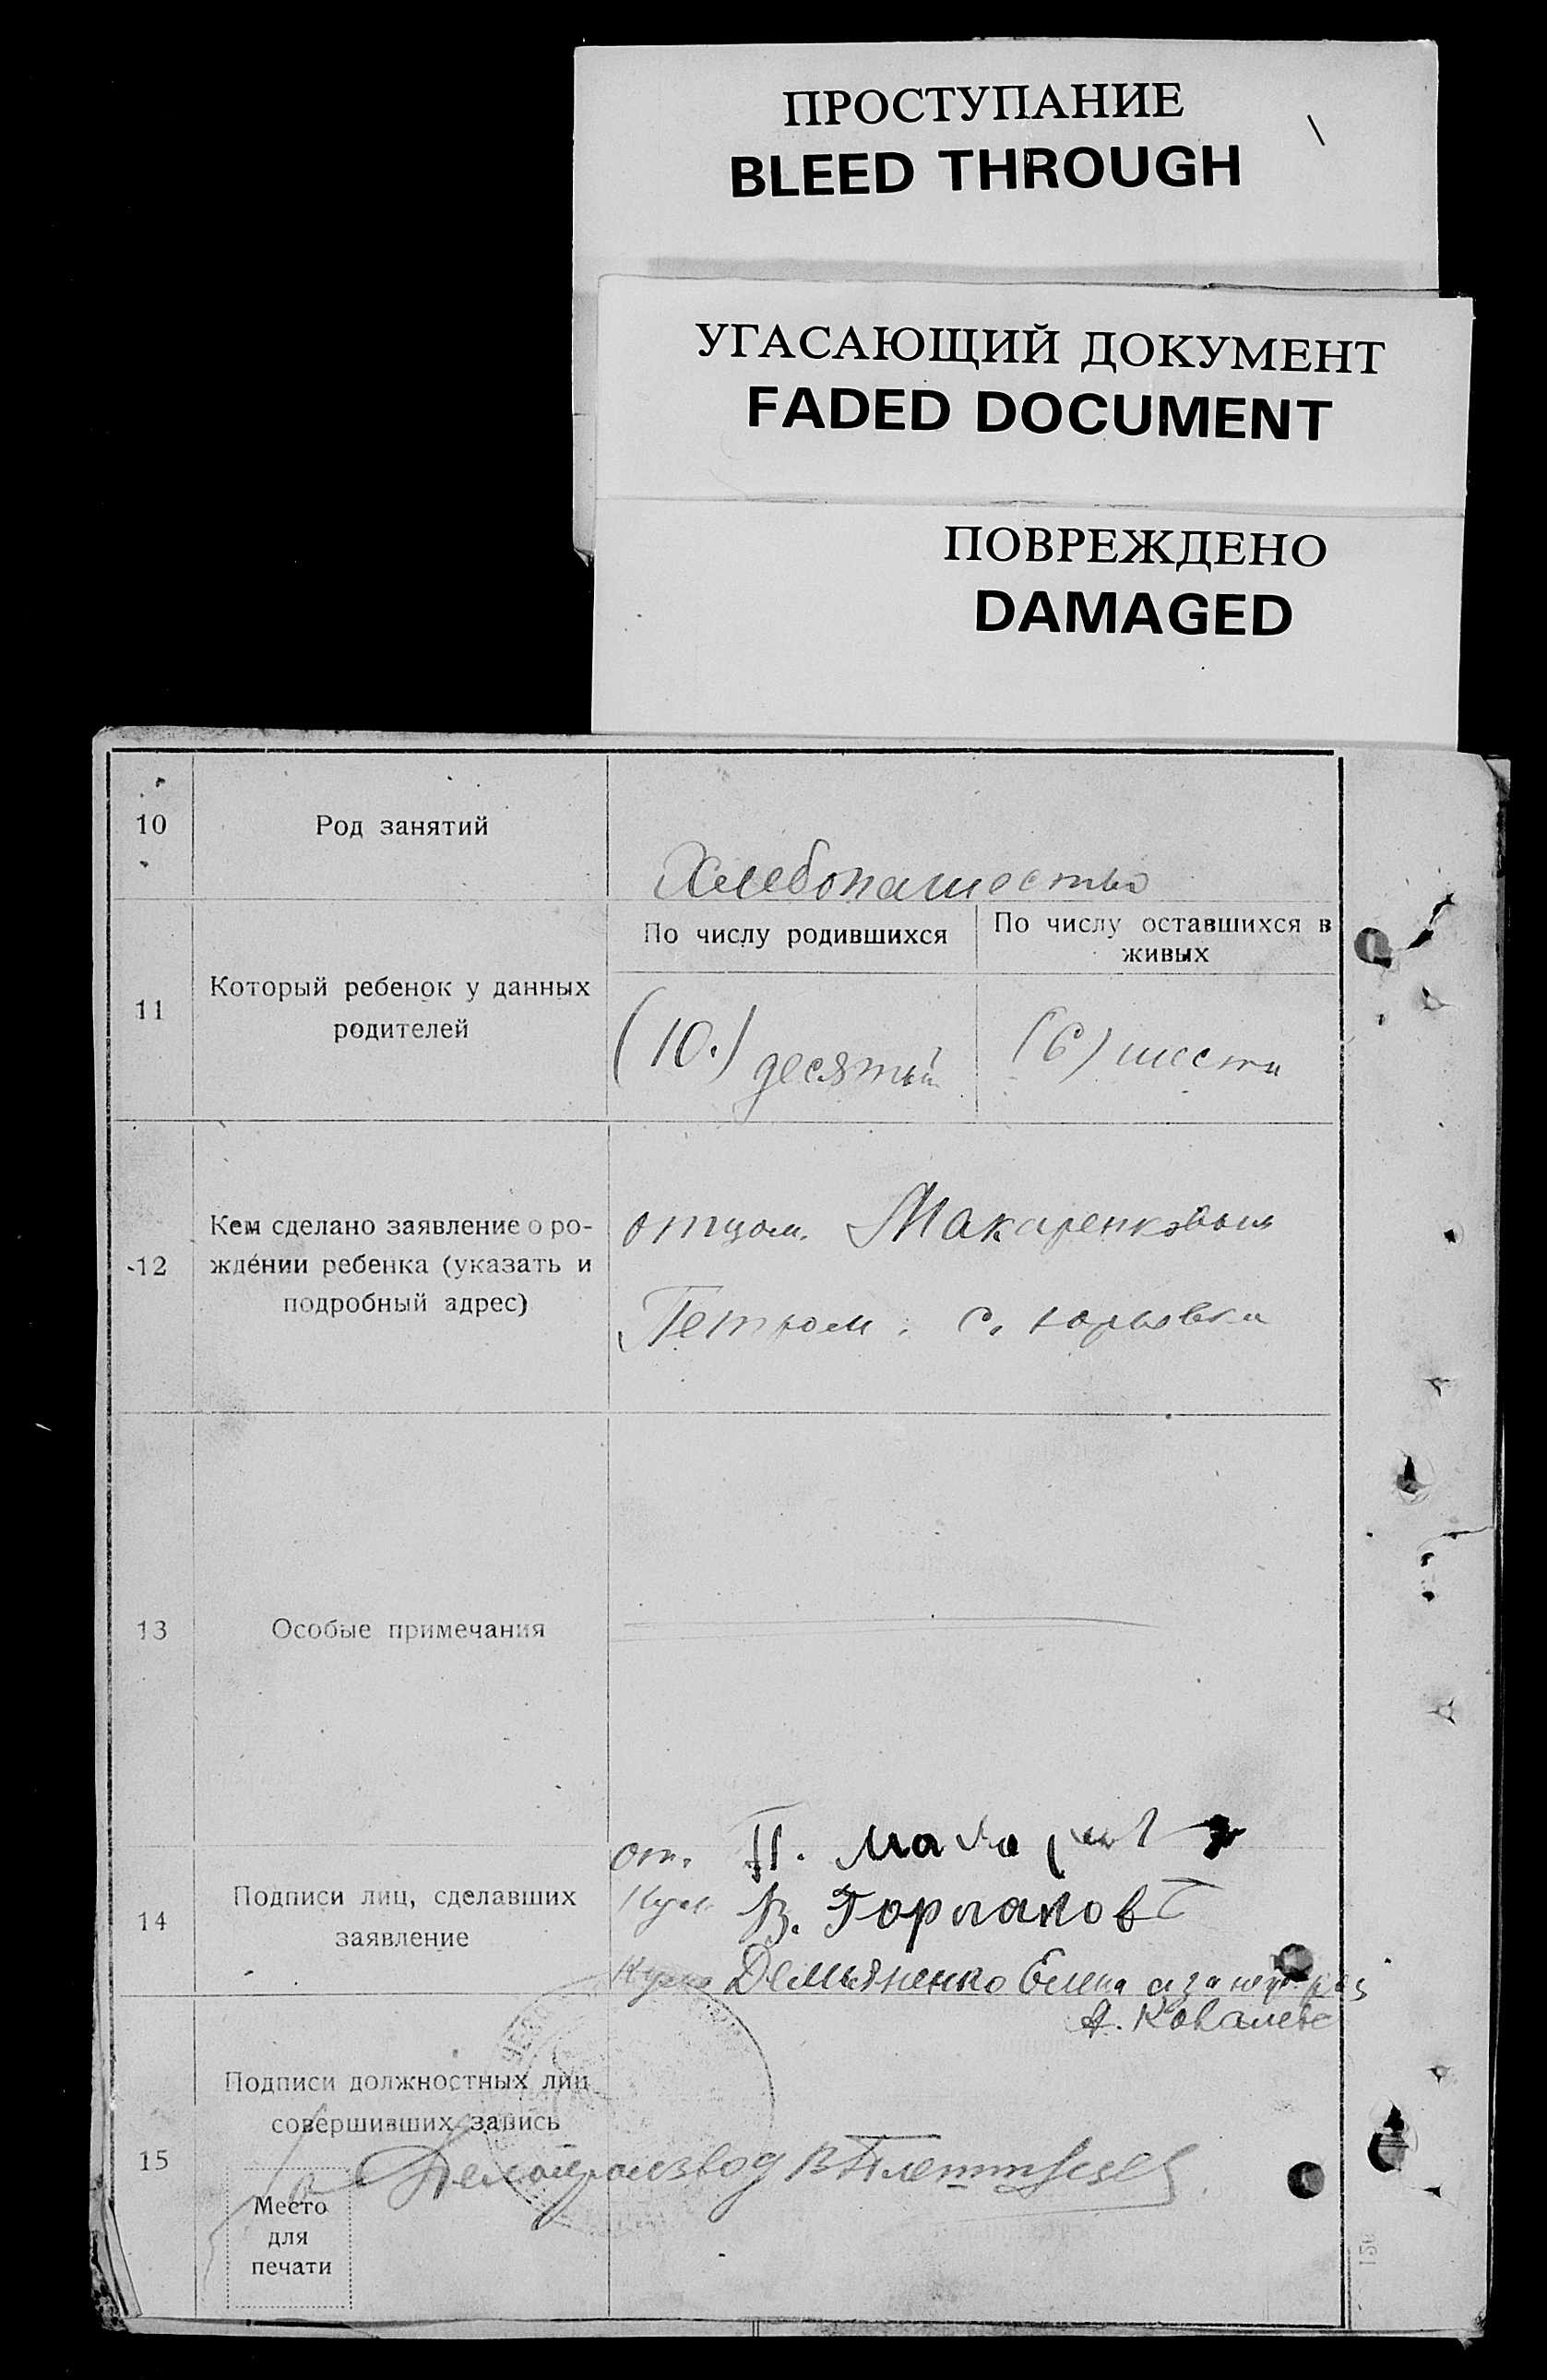 ПРОСТУПАНИЕ
BLEED THROUGH
УГАСАЮЩИЙ ДОКУМЕНТ
FADED DOCUMENT
ПОВРЕЖДЕНО
DAMAGED
10 Род занятий Хлебопашество
11 Который ребенок у данных родителей
По числу родившихся
По числу оставшихся в
живых
(10.) десятый
(6) шести
12
Кем сделано заявление о ро-
ждении ребенка (указать и
подробный адрес)
отцом. Макаренковым
Петром. с.
13 Особые примечания
14
Подписи лиц, сделавших
заявление
от. П.
В. Горлаков
Демьяненко Елена а за
А. Ковалев
15
Подписи должностных лиц
совершивших запись
Делопроизвод
Место
для
печати